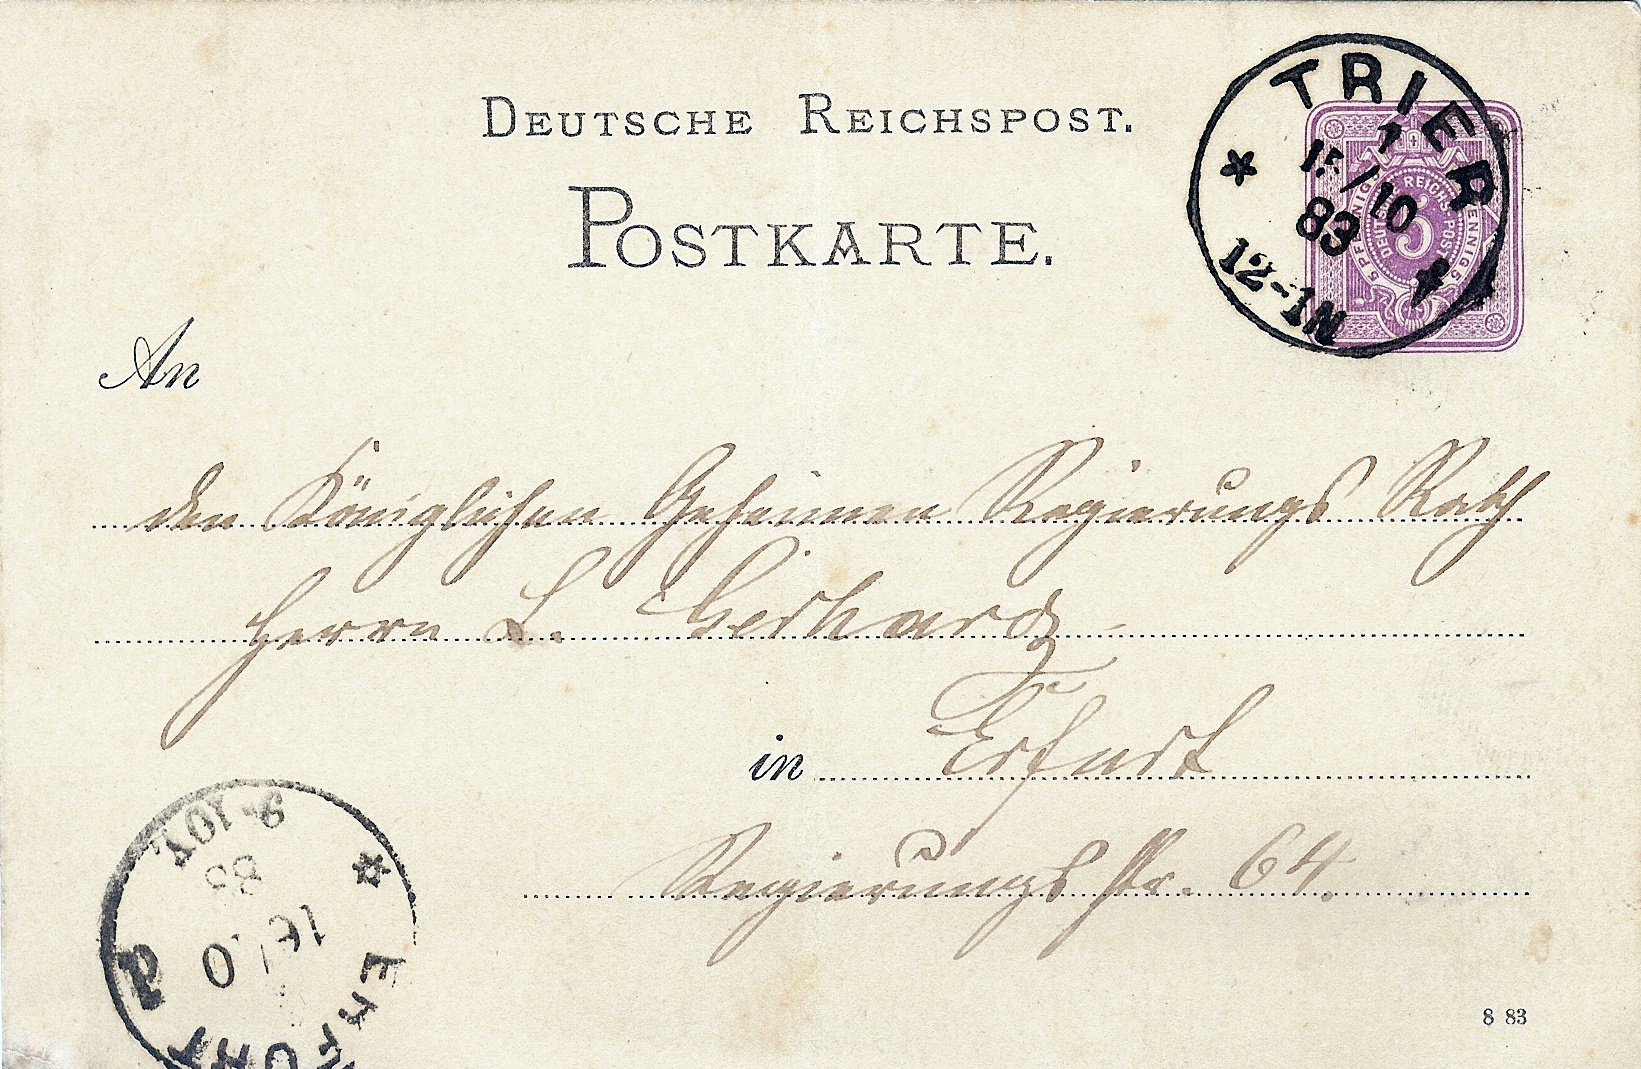 DEUTSCHE REICHSPOST.
POSTKARTE.
TRIER
1
15/10
83
12-1N
DEUTSCHE REICHS-POST
5 PFENNIG 5 PFENNIG
5
An
den Königlichen Geheimen Regierungs Rath
Herrn L. Gerhardy
in Erfurt
Regierungs Str. 64.
ERFURT
16/10
83
9-10V
8 83